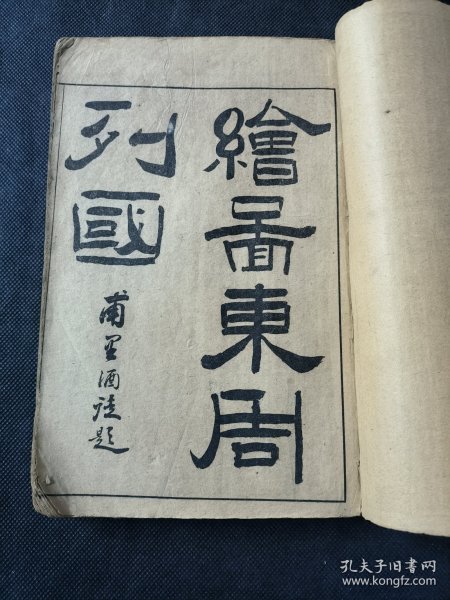 繪啚東周
列國
甫里酒徒題
孔夫子旧书网
www.kongfz.com